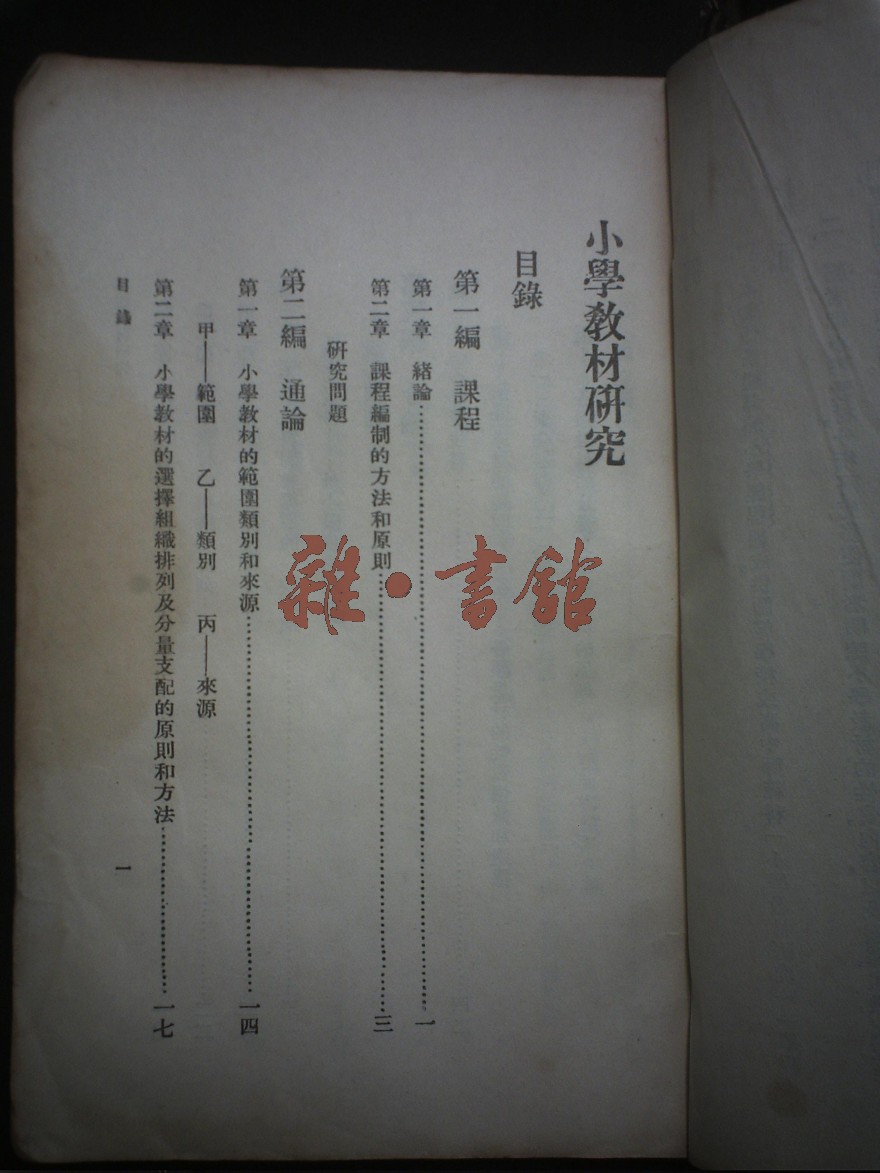 小學教材研究
目錄
第一編　課程
第一章　緒論……………一
第二章　課程編制的方法和原則……………三
研究問題
第二編　通論
第一章　小學教材的範圍類別和來源……………一四
甲——範圍　乙——類別　丙——來源
第二章　小學教材的選擇組織排列及分量支配的原則和方法……………一七
目錄　一
雜·書館